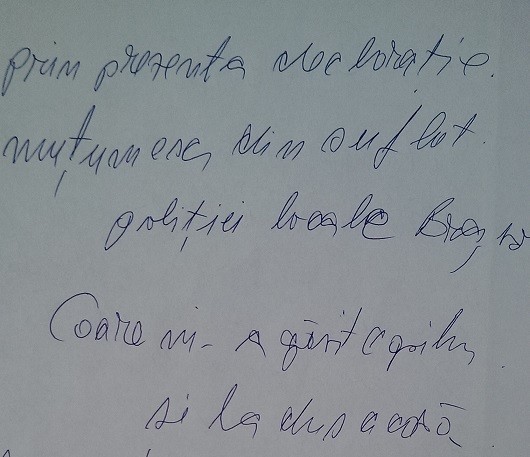 prin prezenta declorație.
muțumesc din suflet.
poliției locale Brașov
Coare mi-a găsit copilu
si la dus acasă.